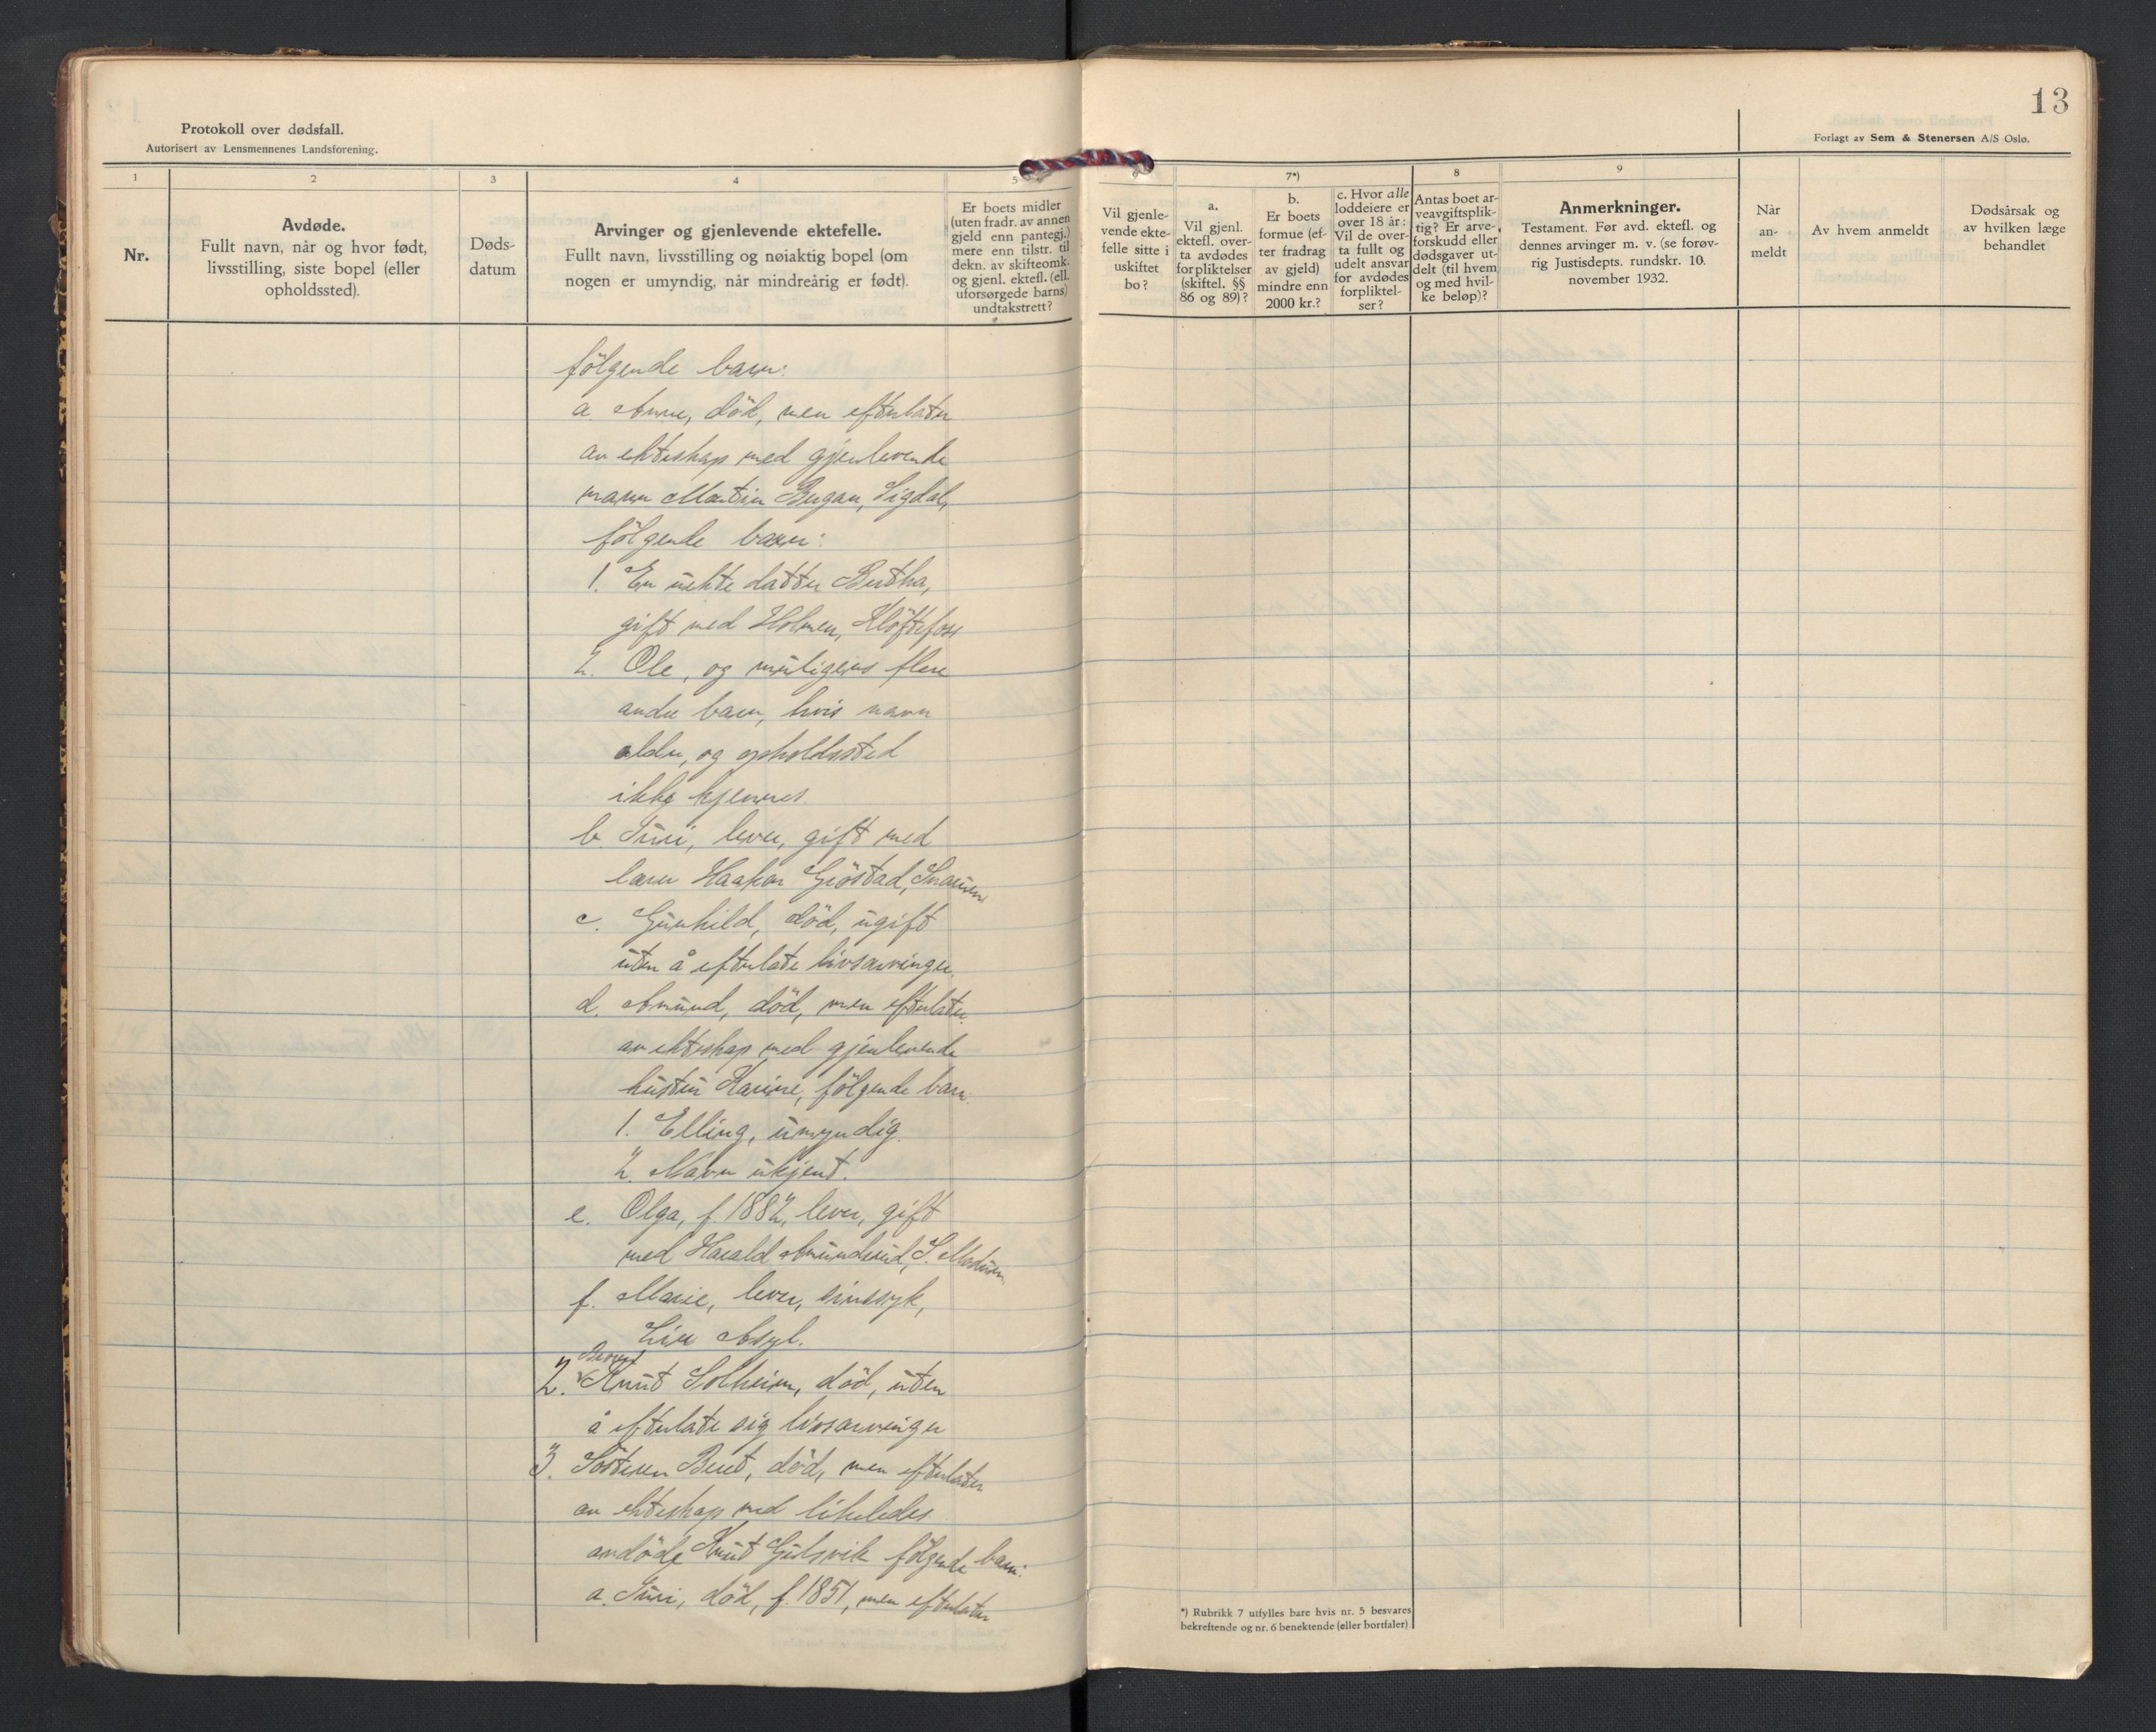 Protokoll over dødsfall.
Autorisert av Lensmennenes Landsforening.
13
Forlagt av Sem & Stenersen A/S Oslo.
1
2
3
4
5
7*)
8
9
Nr.
Avdøde.
Fullt navn, når og hvor født,
livsstilling, siste bopel (eller
opholdssted).
Døds-
datum
Arvinger og gjenlevende ektefelle.
Fullt navn, livsstilling og nøiaktig bopel (om
nogen er umyndig, når mindreårig er født).
Er boets midler
(uten fradr. av annen
gjeld enn pantegj.)
mere enn tilstr. til
dekn. av skifteomk.
og gjenl. ektef. (ell.
uforsørgede barns)
undtakstrett?
Vil gjenle-
vende ekte-
felle sitte i
uskiftet
bo?
a.
Vil gjenl.
ektefl. over-
ta avdødes
forpliktelser
(skiftel. §§
86 og 89)?
b.
Er boets
formue (ef-
ter fradrag
av gjeld)
mindre enn
2000 kr.?
c. Hvor alle
loddeiere er
over 18 år:
Vil de over-
ta fullt og
udelt ansvar
for avdødes
forpliktel-
ser?
Antas boet ar-
veavgiftsplik-
tig? Er arve-
forskudd eller
dødsgaver ut-
delt (til hvem
og med hvil-
ke beløp)?
Anmerkninger.
Testament. Før avd. ektefl. og
dennes arvinger m. v. (se forøv-
rig Justisdepts. rundskr. 10.
november 1932.
Når
an-
meldt
Av hvem anmeldt
Dødsårsak og
av hvilken læge
behandlet
følgende barn:
a. Anne, död, men efterlater
av ekteskap med gjenlevende
mann Martin Bergan, Sigdal,
følgende barn:
1. En uekte datter Bertha,
gift med Holmen, Kløftefoss
2. Ole, og muligens flere
andre barn, hvis navn
alder, og opholdssted
ikke kjennes.
b. Turi, lever, gift med
Haakon Grøstad, Snarum
c. Gunhild, död, ugift
uten å efterlate livsarvinger.
d. Amund, död, men efterlater
av ekteskap med gjenlevende
hustru Karine, følgende barn.
1. Elling, umyndig.
2. Navn ukjent.
e. Olga, f. 1882, lever, gift
med Harald Amundrud, S. Modum
f. Marie, lever, sinssyk,
Lier Asyl.
2. Broren Knut Solheim, död, uten
å efterlate sig livsarvinger
3. Søsteren Berit, död, men efterlater
av ekteskap med likeledes
avdøde Knut Gulsvik følgende barn:
a. Turi, död, f. 1851, men efterlater
*) Rubrikk 7 utfylles bare hvis nr. 5 besvares
bekreftende og nr. 6 benektende (eller bortfaler).